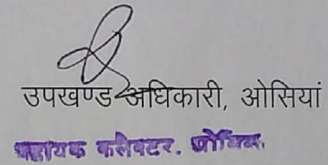 उपखण्ड अधिकारी, ओसियां
सहायक कलेक्टर.